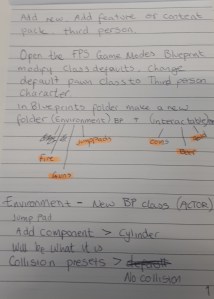 Add new. Add feature or content
pack. third person.
Open the FPS Game Modes Blueprint
modify Class defaults. Change
default pawn class to Third person
Character.
In Blueprints folder make a new
folder (Environment) BP + (interactables)
Jumppads
Coins
Fire
Door
Guns
Environment - New BP class (ACTOR)
Jump Pad
Add component > Cylinder
Will be what it is
Collision presets > default
No collision
1